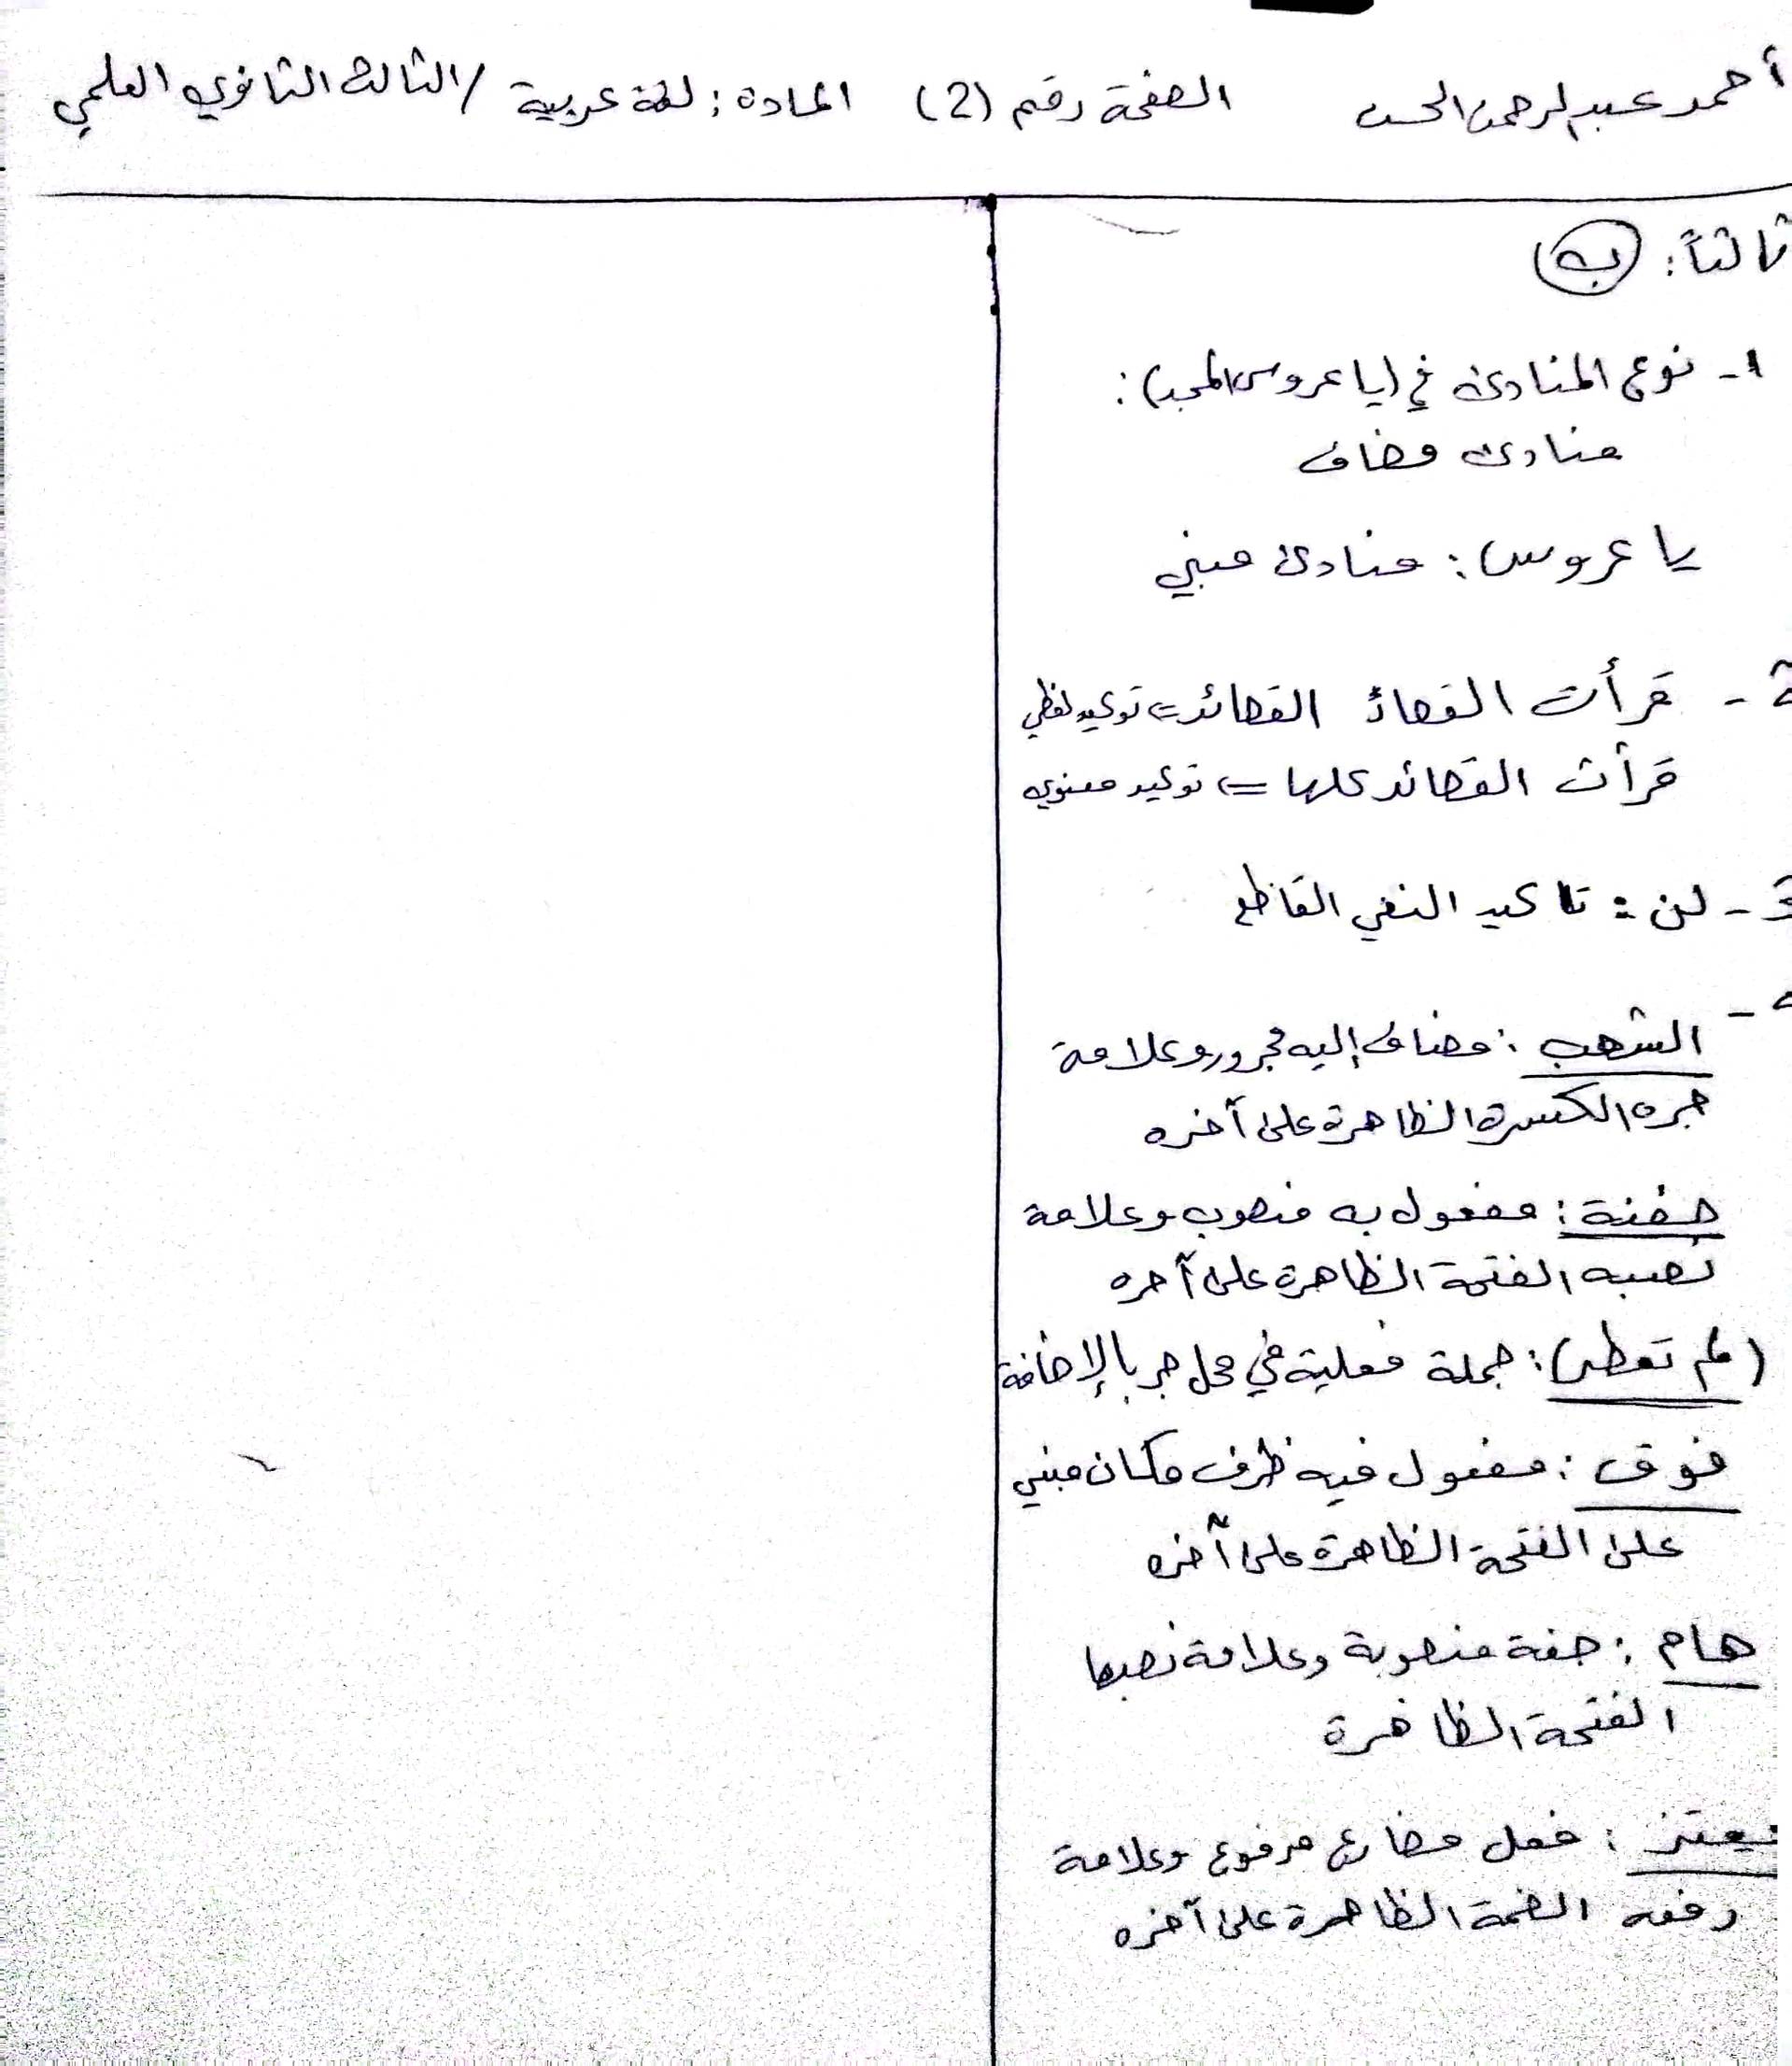 أحمد عبدالرحمن الحسن الصفحة رقم (2) المادة: لغة عربية / الثالث الثانوي العلمي
ثالثاً: (ب)
1- نوع المنادى في (يا عروس المجد):
منادى مضاف
يا عروس: منادى مبني
2- قرأت القصائد القصائد => توكيد لفظي
قرأت القصائد كلها => توكيد معنوي
3- لن: تاكيد النفي القاطع
- الشهب: مضاف إليه مجرور وعلامة
جره الكسرة الظاهرة على آخره
حفنة: مفعول به منصوب وعلامة
نصبه الفتحة الظاهرة على آخره
(لم تعطر): جملة فعلية في محل جر بالإضافة
فوق: مفعول فيه ظرف مكان مبني
على الفتحة الظاهرة على آخره
هام: صفة منصوبة وعلامة نصبها
الفتحة الظاهرة
يعتز: فعل مضارع مرفوع وعلامة
رفعه الضمة الظاهرة على آخره